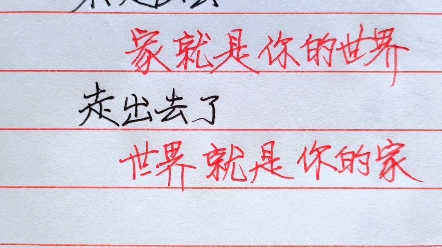 家就是你的世界
走出去了
世界就是你的家